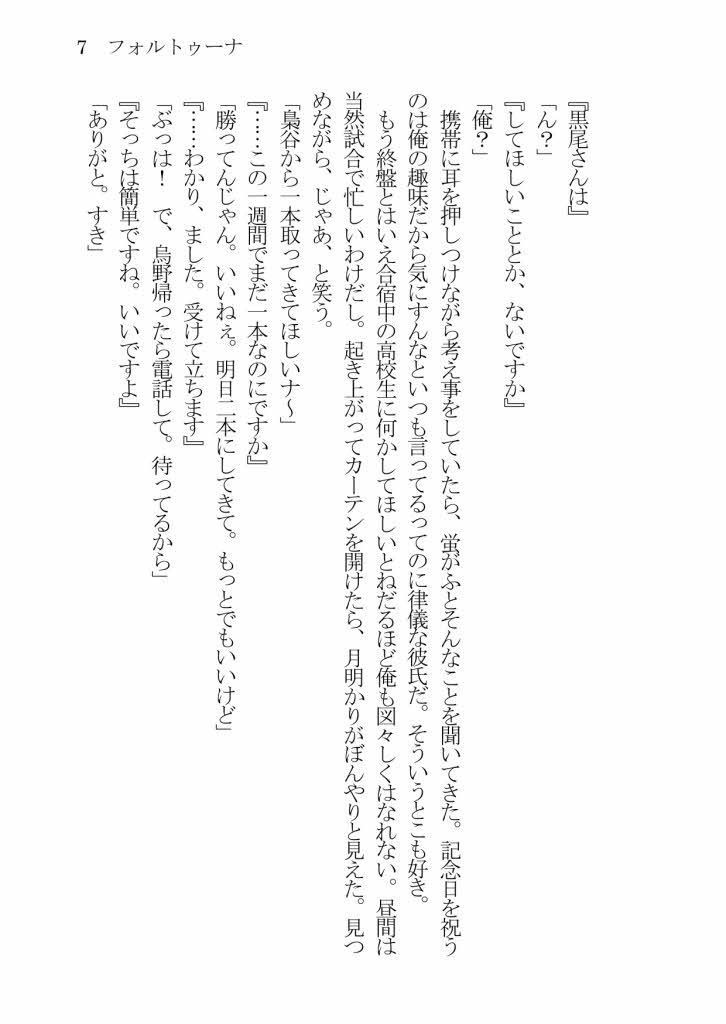 7　フォルトゥーナ
『黒尾さんは』
「ん？」
『してほしいこととか、ないですか』
「俺？」
携帯に耳を押しつけながら考え事をしていたら、蛍がふとそんなことを聞いてきた。記念日を祝う
のは俺の趣味だから気にすんなといつも言ってるってのに律儀な彼氏だ。そういうとこも好き。
もう終盤とはいえ合宿中の高校生に何かしてほしいとねだるほど俺も図々しくはなれない。昼間は
当然試合で忙しいわけだし。起き上がってカーテンを開けたら、月明かりがぼんやりと見えた。見つ
めながら、じゃあ、と笑う。
「梟谷から一本取ってきてほしいナ～」
『……この一週間でまだ一本なのにですか』
「勝ってんじゃん。いいねぇ。明日二本にしてきて。もっとでもいいけど」
『……わかり、ました。受けて立ちます』
「ぶっは！　で、烏野帰ったら電話して。待ってるから」
『そっちは簡単ですね。いいですよ』
「ありがと。すき」